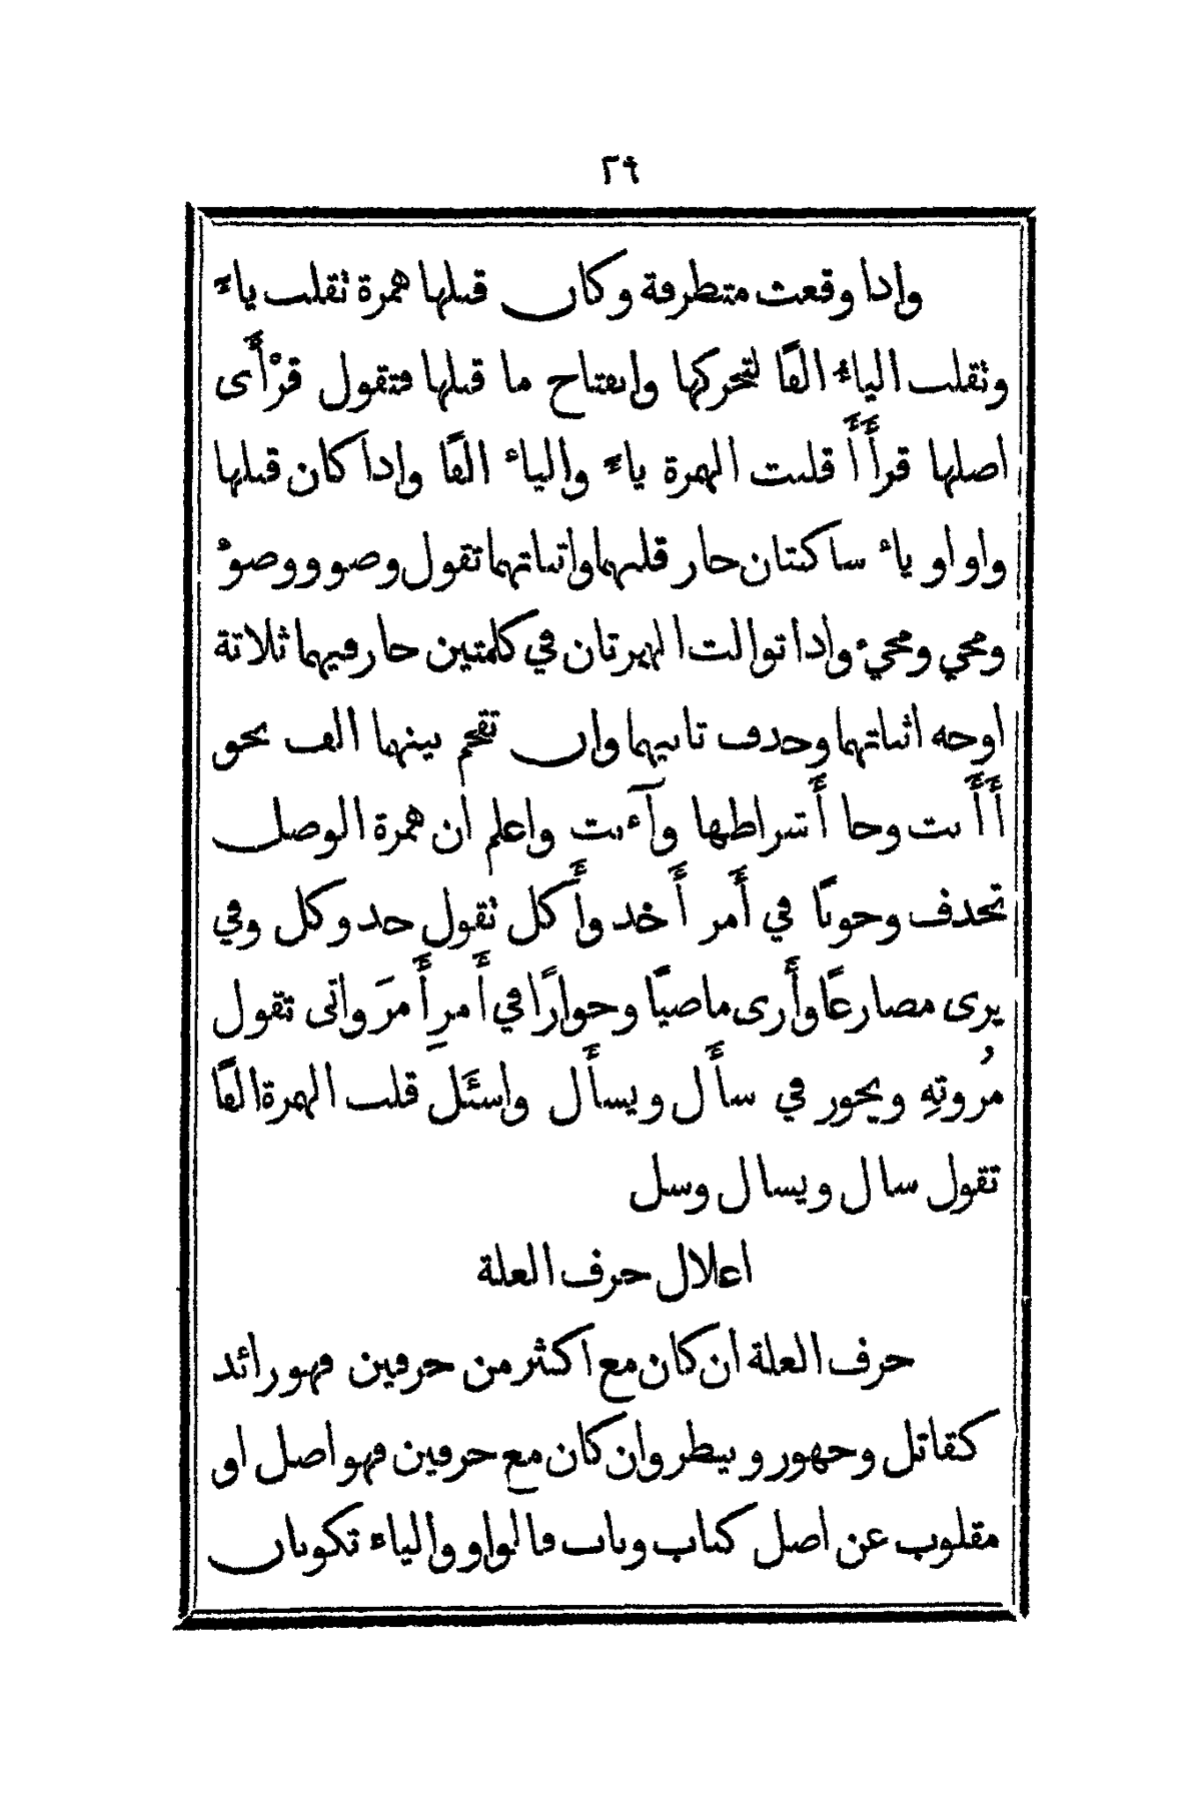 ٢٩
واذا وقعت متطرفة وكان قبلها همزة تقلب ياءً
وتقلب الياءُ الفًا لتحركها وانفتاح ما قبلها فتقول قرْأَى
اصلها قرأَأَ قلبت الهمزة ياءً والياء الفًا واذا كان قبلها
واو او ياء ساكنتان جاز قلبهما واثباتهما تقول وضوو ووضوْ
ومجي ومجيء واذا توالت الهمزتان في كلمتين جاز فيهما ثلاثة
اوجه اثباتهما وحذف ثانيهما وان تقحم بينهما الف نحو
أَأَنت وجا أَشراطها وآءنت واعلم ان همزة الوصل
تحذف وجوبًا في أَمر أَخذ وأَكل تقول خذ وكل وفي
يرى مضارعًا وأَرى ماضيًا وجوازًا في أَمرِ أَمرَ واتى تقول
مُروتِهِ ويجوز في سأَل ويسأَل واسئَل قلب الهمزة الفًا
تقول سال ويسال وسل
اعلال حرف العلة
حرف العلة ان كان مع اكثر من حرفين فهو زائد
كقاتل وجهور وبيطر وان كان مع حرفين فهو اصل او
مقلوب عن اصل كتاب وباب فالواو والياء تكونان